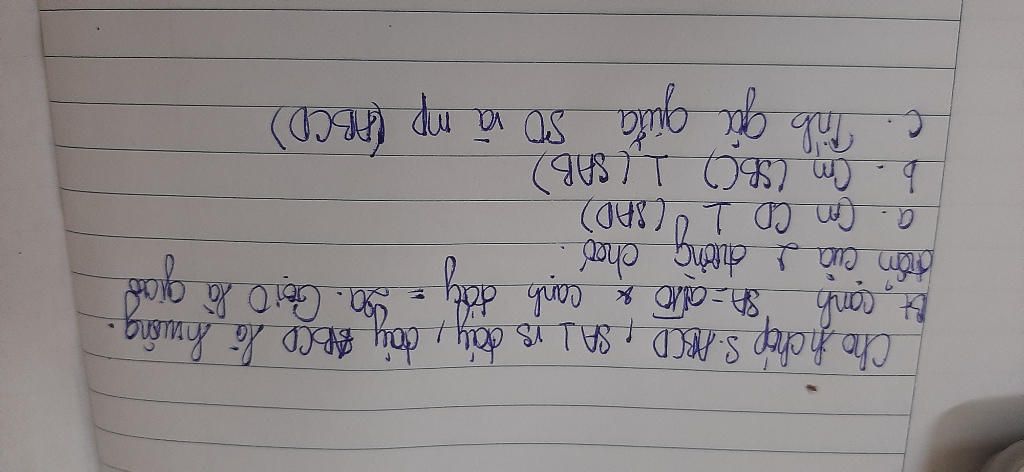 Cho h chóp S.ABCD, SA⊥ vs đáy, đáy ABCD là h.vuông.
Bt cạnh SA = a√10 & cạnh đáy = 2a. Gọi O là giao
điểm của 2 đường chéo.
a. Cm CD ⊥ (SAD)
b. Cm (SBC) ⊥ (SAB)
c. Tính góc giữa SO và mp (ABCD)